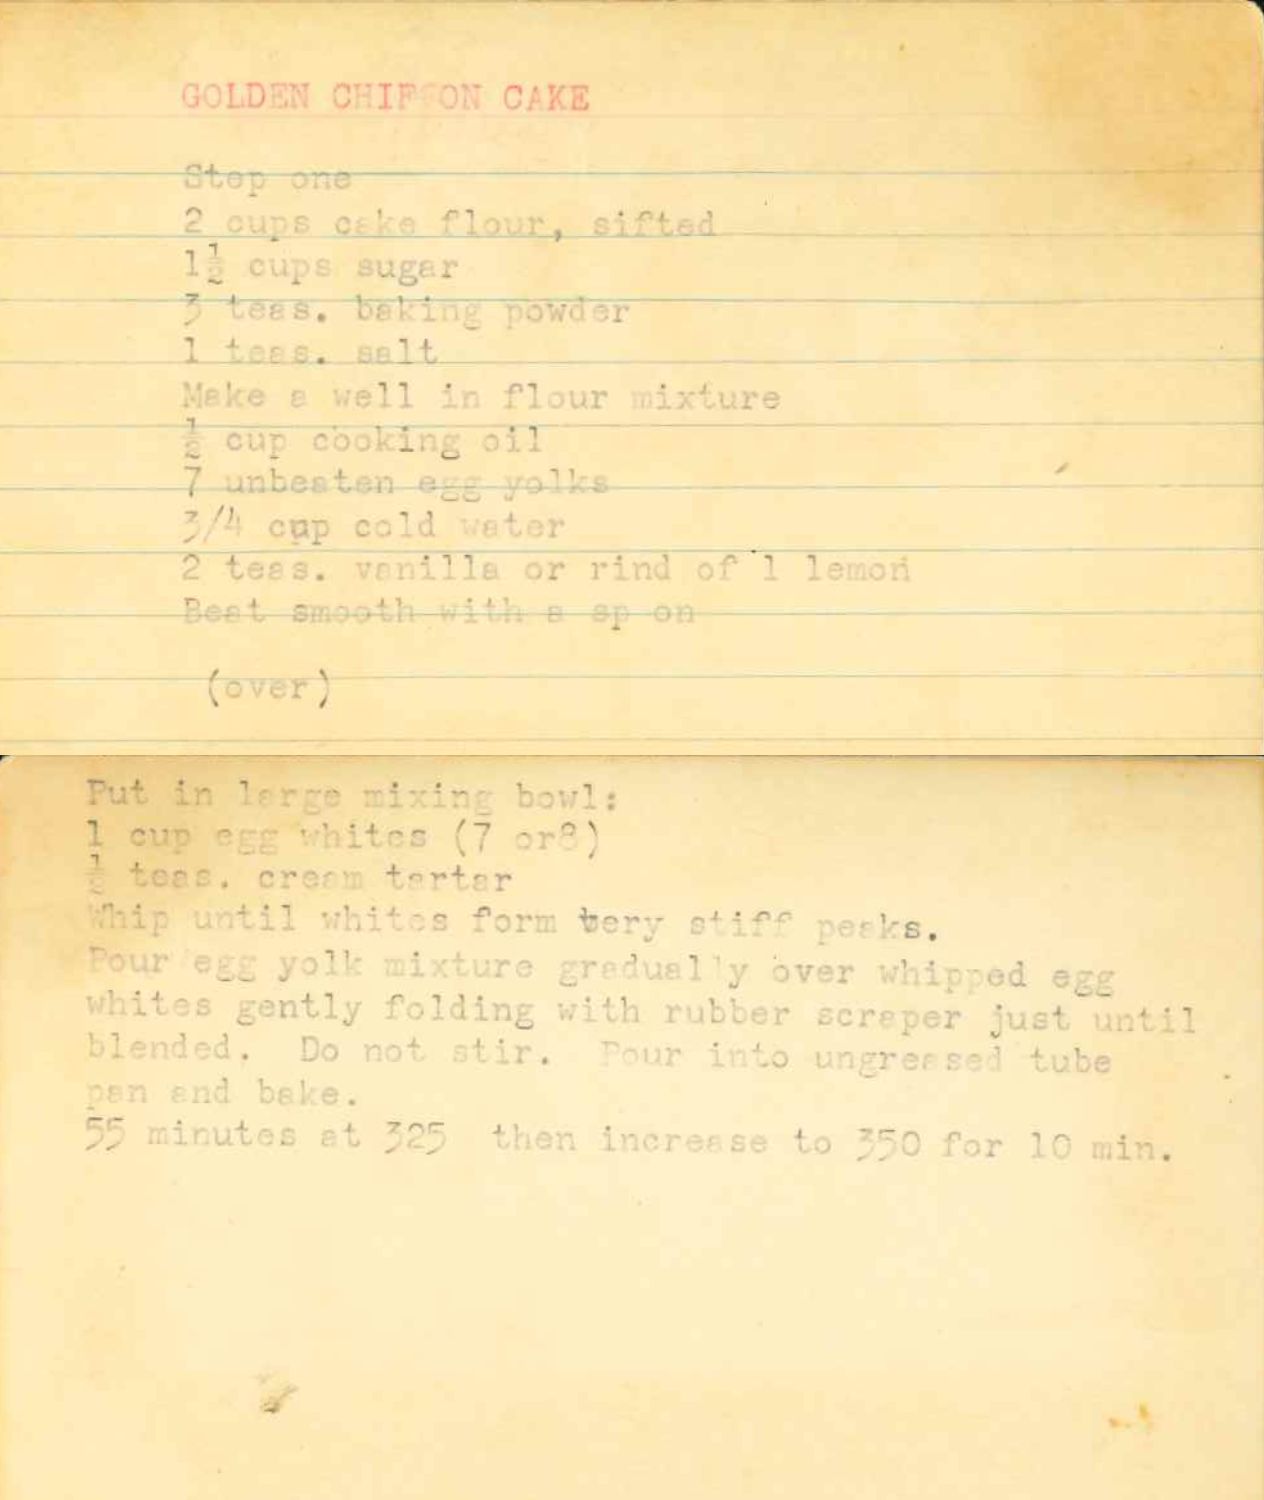 GOLDEN CHIFFON CAKE
Step one
2 cups cake flour, sifted
1½ cups sugar
3 teas. baking powder
1 teas. salt
Make a well in flour mixture
½ cup cooking oil
7 unbeaten egg yolks
3/4 cup cold water
2 teas. vanilla or rind of 1 lemon
Beat smooth with a sp on
(over)
Put in large mixing bowl:
1 cup egg whites (7 or8)
½ teas. cream tartar
Whip until whites form very stiff peaks.
Pour egg yolk mixture gradually over whipped egg
whites gently folding with rubber scraper just until
blended. Do not stir. Pour into ungreased tube
pan and bake.
55 minutes at 325 then increase to 350 for 10 min.